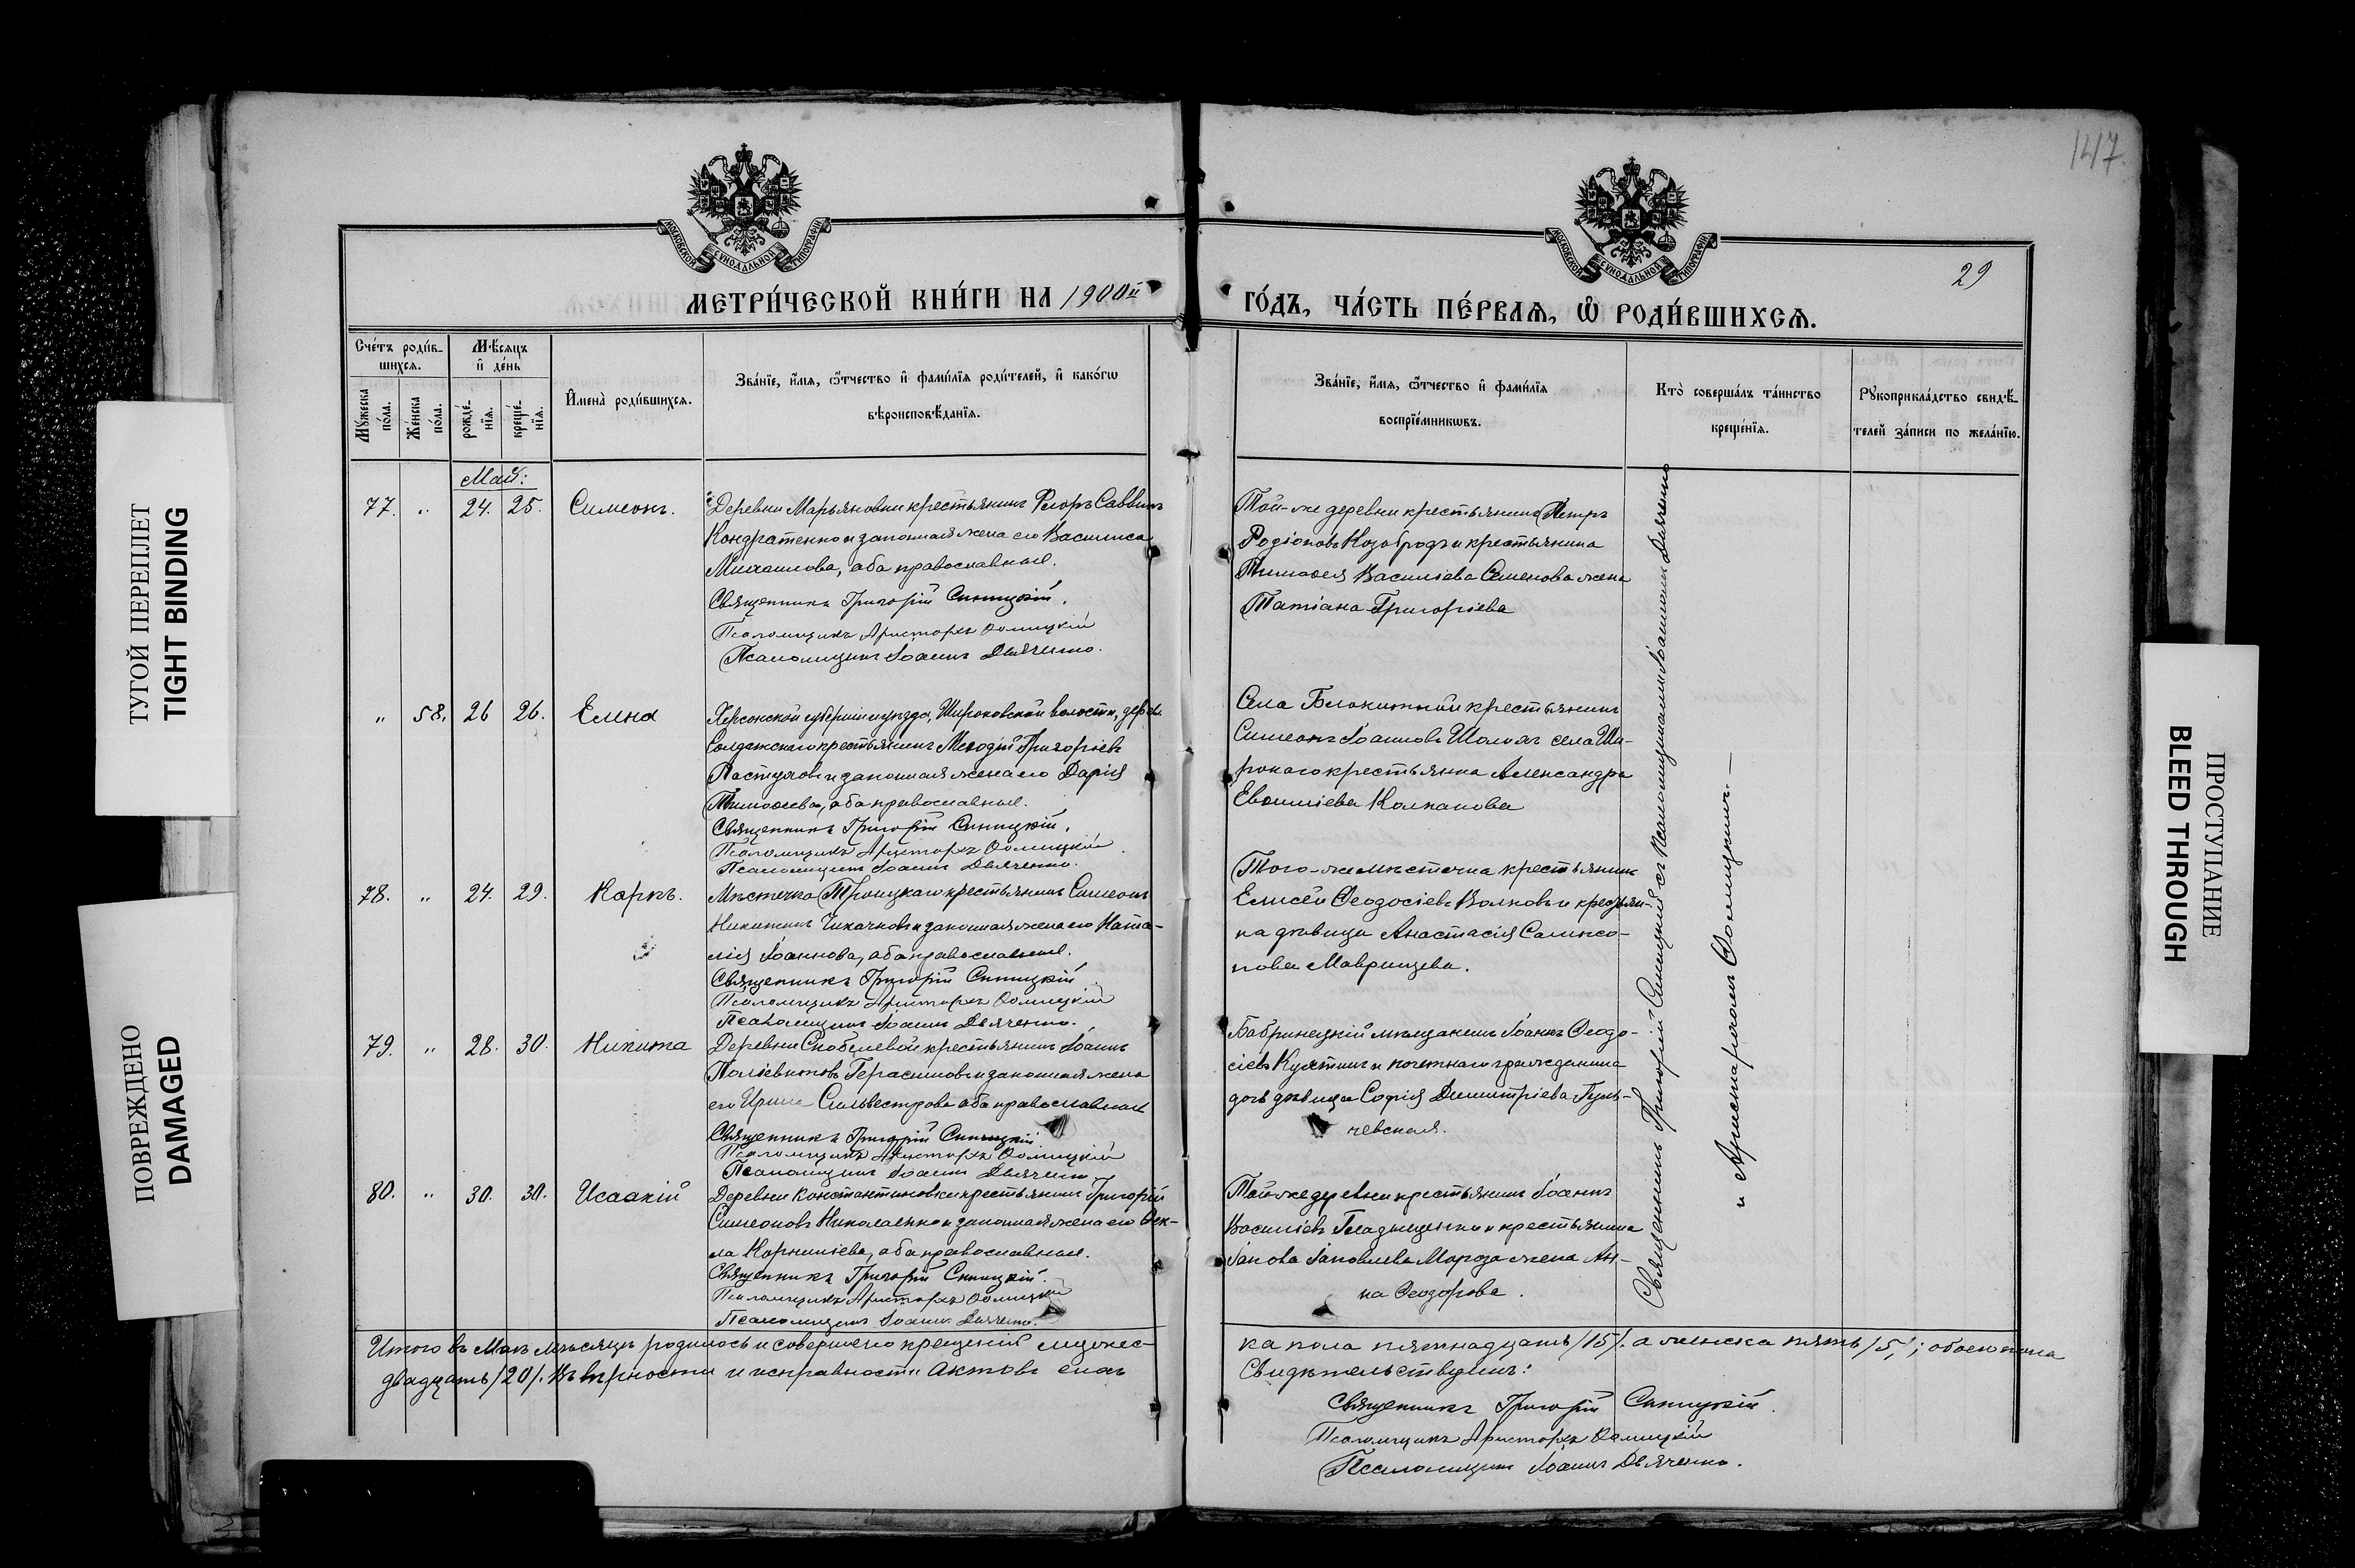 147.
29
МОСКОВСКОЙ СУНОДАЛЬНОЙ ТИПОГРАФІИ
МОСКОВСКОЙ СУНОДАЛЬНОЙ ТИПОГРАФІИ
МЕТРИ́ЧЕСКОЙ КНИ́ГИ НА 1900й
ГО́ДЪ, ЧА́СТЬ ПЕ́РВАѦ, Ѡ РОДИ́ВШИХСѦ.
Сче́тъ роди́в-
шихсѧ.
Мꙋжеска по́ла.
Же́нска по́ла.
Мѣ́сѧцъ и де́нь
рожде́-нїѧ.
креще́-нїѧ.
И҆мена̀ роди́вшихсѧ.
Зва́нїе, и҆́мѧ, ѻ҆́тчество и҆ фами́лїѧ роди́телей, и҆ како́гѡ
вѣроисповѣ́данїѧ.
Зва́нїе, и҆́мѧ, ѻ҆́тчество и҆ фами́лїѧ
воспрїе́мникѡвъ.
Кто̀ соверша́лъ та́инство
креще́нїѧ.
Рꙋкоприкла́дство свидѣ́-
телей за́писи по жела́нїю.
Май:
77. " 24. 25. Симеонъ.
Деревни Марьяновки крестьянинъ Ѳеоръ Саввинъ
Кондратенко и законная жена его Василиса
Михаилова, оба православные.
Священникъ Григорій Синицкій.
Псаломщикъ Аристархъ Ѳомицкій
Псаломщикъ Іоаннъ Дьяченко.
Той-же деревни крестьянинъ Петръ
Родіоновъ Козабродъ и крестьянина
Тимоѳея Василіева Семенова жена
Татіана Григоріева
" 58. 26 26. Елена
Херсонской губерніи и уѣзда, Широковской волости, дерев.
Солдатскаго крестьянинъ Меѳодій Григоріевъ
Пастуховъ и законная жена его Дарія
Тимоѳеева, оба православные.
Священникъ Григорій Синицкій.
Псаломщикъ Аристархъ Ѳомицкій
Псаломщикъ Іоаннъ Дьяченко.
Села крестьянинъ
Симеонъ Іоанновъ села Ши-
рокаго крестьянка Александра
Евѳиміева Колпакова
78. " 24. 29. Карпъ.
Мѣстечка Троицкаго крестьянинъ Симеонъ
Никитинъ и законная жена его Ната-
лія Іоаннова, оба православные.
Священникъ Григорій Синицкій
Псаломщикъ Аристархъ Ѳомицкій
Псаломщикъ Іоаннъ Дьяченко.
Того-же мѣстечка крестьянинъ
Елисей Ѳеодосіевъ Волковъ и крестьян-
ка дѣвица Анастасія Сампсо-
нова Мавринцева.
79. " 28. 30. Никита
Деревни Скобелевой крестьянинъ Іоаннъ
Поліевктовъ Герасимовъ и законная жена
его Ирина Сильвестрова оба православные
Священникъ Григорій Синицкій.
Псаломщикъ Аристархъ Ѳомицкій
Псаломщикъ Іоаннъ Дьяченко
Бобринецкій мѣщанинъ Іоаннъ Ѳеодо-
сіевъ и почетнаго гражданина
дочь дѣвица Софія Димитріева
чевская.
80. " 30. 30. Исаакій
Деревни Константиновки крестьянинъ Григорій
Симеоновъ Николаенко и законная жена его Ѳек-
ла Корниліева, оба православные.
Священникъ Григорій Синицкій.
Псаломщикъ Аристархъ Ѳомицкій
Псаломщикъ Іоаннъ Дьяченко.
Той-же деревни крестьянинъ Іоаннъ
Василіевъ и крестьянина
Іакова Іаковлева Мороза жена Ан-
на Ѳеодорова.
Священникъ Григорій Синицкій съ псаломщиками Іоанномъ Дьяченко
и Аристархомъ Ѳомицкимъ.—
Итого въ Маѣ мѣсяцѣ родилось и совершено крещеній мужес-
ка пола пятнадцать /15/. а женска пять /5/; обоего пола
двадцать /20/. Въ вѣрности и исправности актовъ сихъ
Свидѣтельствуемъ:
Священникъ Григорій Синицкій.
Псаломщикъ Аристархъ Ѳомицкій
Псаломщикъ Іоаннъ Дьяченко.
ТУГОЙ ПЕРЕПЛЕТ
TIGHT BINDING
ПОВРЕЖДЕНО
DAMAGED
ПРОСТУПАНИЕ
BLEED THROUGH